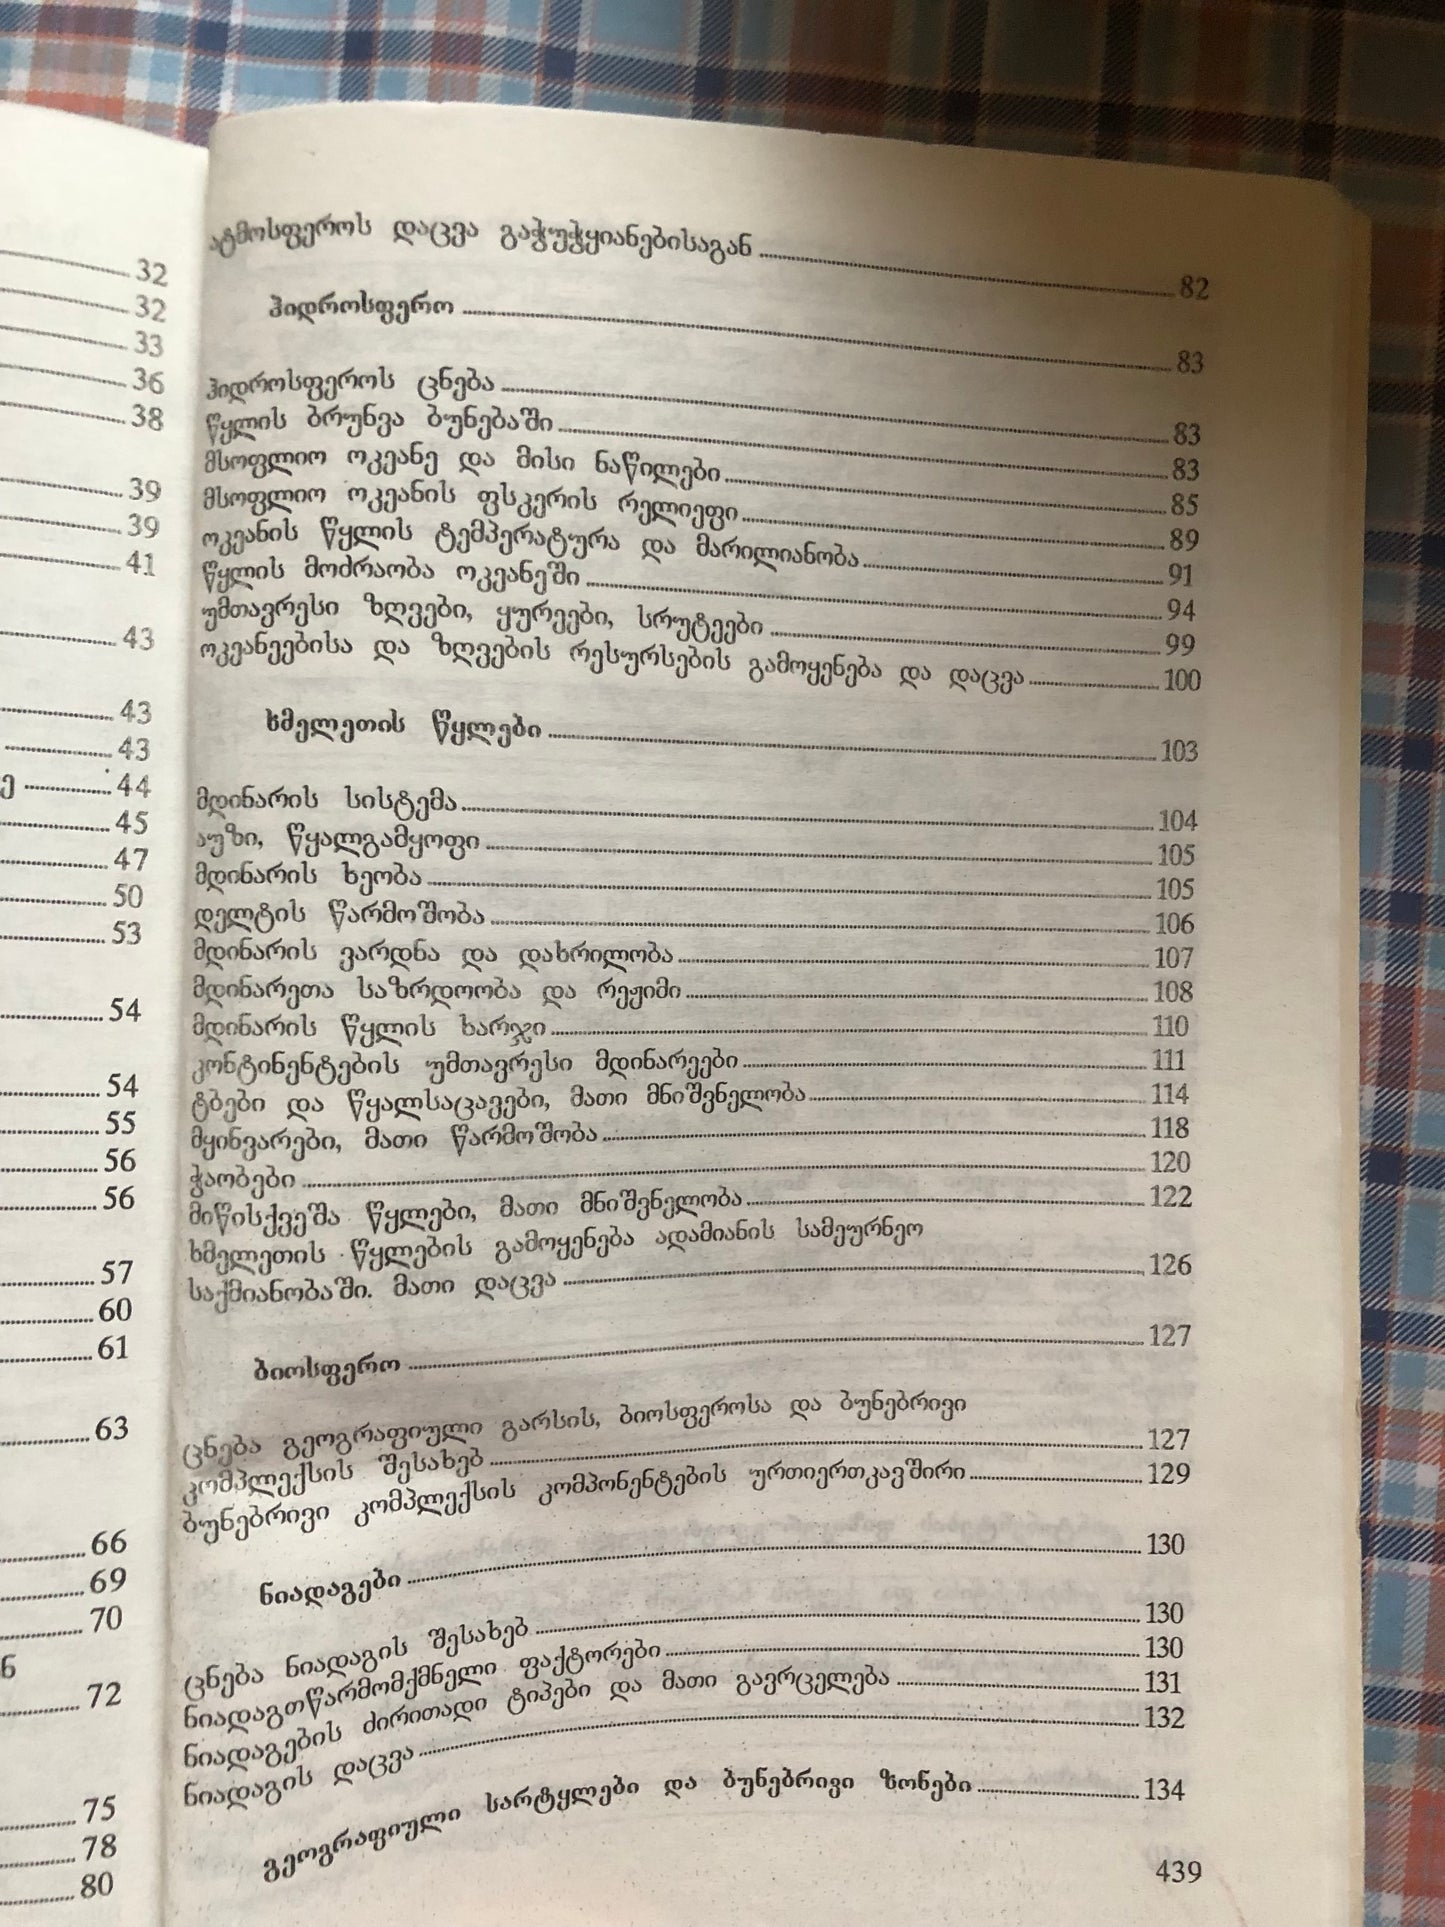 32
32
33
36
38
39
39
41
43
43
43
44
45
47
50
53
54
54
55
56
56
57
60
61
63
66
69
70
ნ
72
75
78
80
ატმოსფეროს დაცვა გაჭუჭყიანებისაგან 82
ჰიდროსფერო 83
ჰიდროსფეროს ცნება 83
წყლის ბრუნვა ბუნებაში 83
მსოფლიო ოკეანე და მისი ნაწილები 85
მსოფლიო ოკეანის ფსკერის რელიეფი 89
ოკეანის წყლის ტემპერატურა და მარილიანობა 91
წყლის მოძრაობა ოკეანეში 94
უმთავრესი ზღვები, ყურეები, სრუტეები 99
ოკეანეებისა და ზღვების რესურსების გამოყენება და დაცვა 100
ხმელეთის წყლები 103
მდინარის სისტემა 104
აუზი, წყალგამყოფი 105
მდინარის ხეობა 105
დელტის წარმოშობა 106
მდინარის ვარდნა და დახრილობა 107
მდინარეთა საზრდოობა და რეჟიმი 108
მდინარის წყლის ხარჯი 110
კონტინენტების უმთავრესი მდინარეები 111
ტბები და წყალსაცავები, მათი მნიშვნელობა 114
მყინვარები, მათი წარმოშობა 118
ჭაობები 120
მიწისქვეშა წყლები, მათი მნიშვნელობა 122
ხმელეთის წყლების გამოყენება ადამიანის სამეურნეო
საქმიანობაში. მათი დაცვა 126
ბიოსფერო 127
ცნება გეოგრაფიული გარსის, ბიოსფეროსა და ბუნებრივი
კომპლექსის შესახებ 127
ბუნებრივი კომპლექსის კომპონენტების ურთიერთკავშირი 129
ნიადაგები 130
ცნება ნიადაგის შესახებ 130
ნიადაგთწარმომქმნელი ფაქტორები 130
ნიადაგების ძირითადი ტიპები და მათი გავრცელება 131
ნიადაგის დაცვა 132
გეოგრაფიული სარტყლები და ბუნებრივი ზონები 134
439